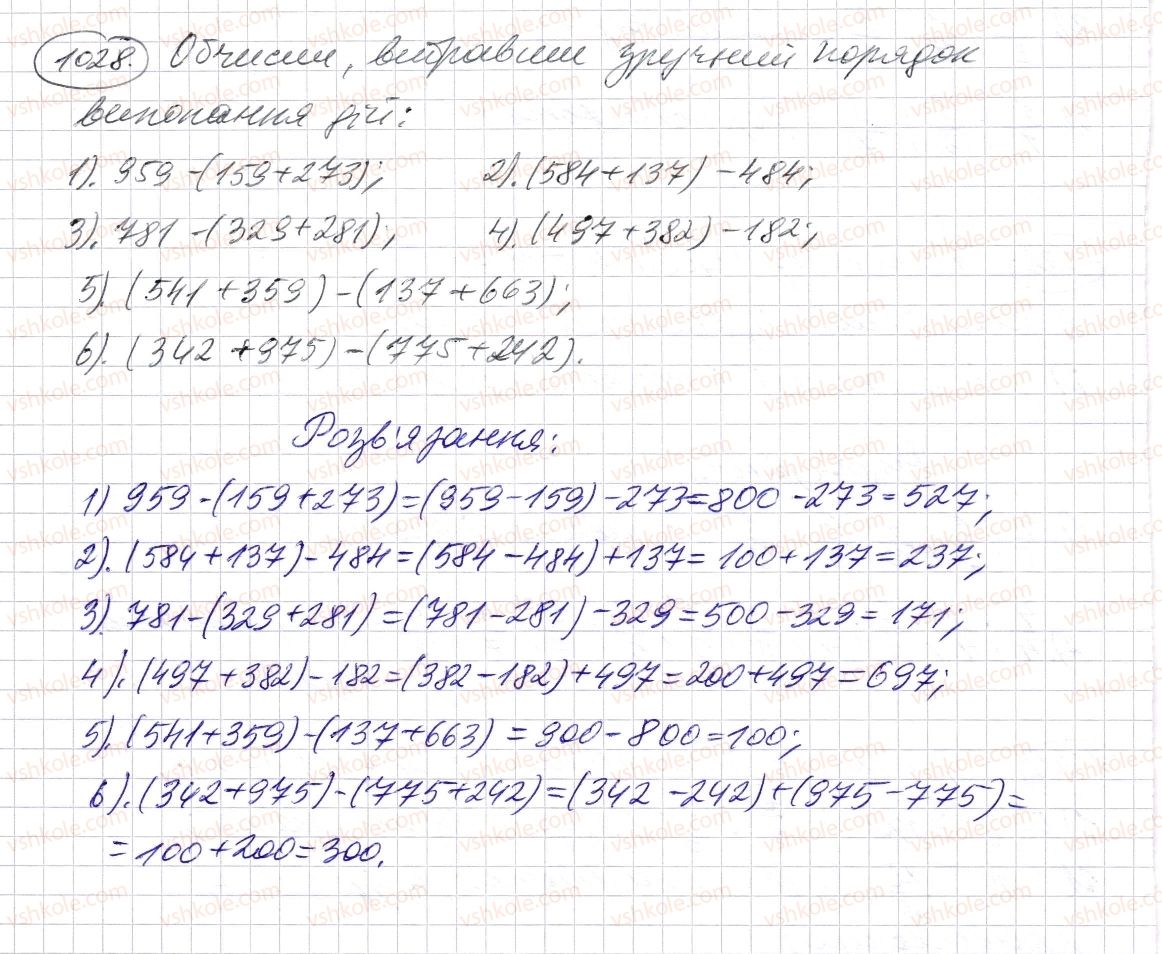 1028. Обчисли, вибравши зручний порядок
виконання дій:
1). 959 - (159 + 273); 2). (584 + 137) - 484;
3). 781 - (329 + 281); 4). (497 + 382) - 182;
5). (541 + 359) - (137 + 663);
6). (342 + 975) - (775 + 242).
Розв'язання:
1) 959 - (159 + 273) = (959 - 159) - 273 = 800 - 273 = 527;
2). (584 + 137) - 484 = (584 - 484) + 137 = 100 + 137 = 237;
3) 781 - (329 + 281) = (781 - 281) - 329 = 500 - 329 = 171;
4). (497 + 382) - 182 = (382 - 182) + 497 = 200 + 497 = 697;
5). (541 + 359) - (137 + 663) = 900 - 800 = 100;
6). (342 + 975) - (775 + 242) = (342 - 242) + (975 - 775) =
= 100 + 200 = 300.
vshkole.com